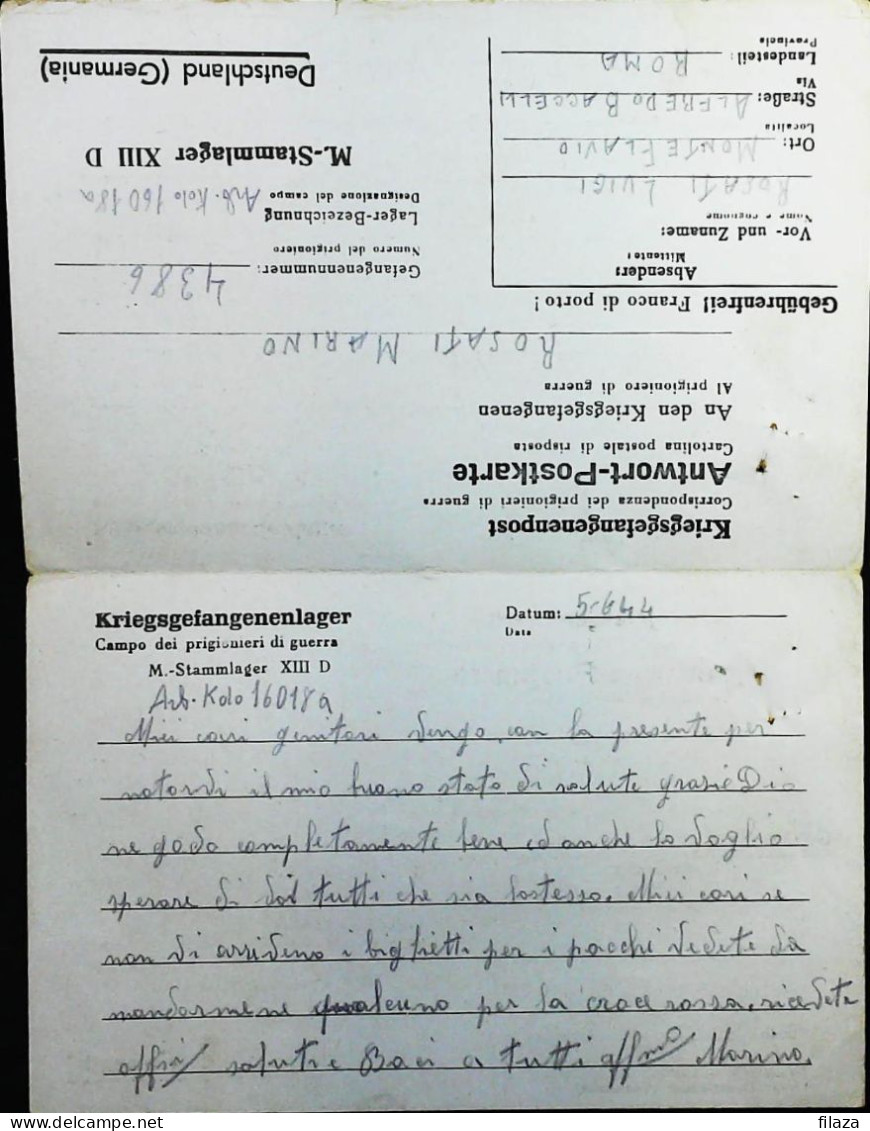 Kriegsgefangenenpost
Corrispondenza dei prigionieri di guerra
Antwort-Postkarte
Cartolina postale di risposta
An den Kriegsgefangenen
Al prigioniero di guerra
ROSATI MARINO
Gebührenfrei! Franco di porto!
Absender:
Mittente:
Vor- und Zuname:
Nome e cognome
ROSATI LUIGI
Ort: MONTE FLAVIO
Localita
Straße: ALFREDO BACCELLI
Via
Landesteil: ROMA
Provincia
Gefangenennummer: 4386
Numero del prigioniero
Lager-Bezeichnung
Designazione del campo Arb. Kdo 16018a
M.-Stammlager XIII D
Deutschland (Germania)
Kriegsgefangenenlager
Campo dei prigionieri di guerra
M.-Stammlager XIII D
Arb. Kdo 16018a
Datum: 5-6 44
Data
Miei cari genitori vengo con la presente per
notarvi il mio buono stato di salute grazie Dio
ne godo completamente bene ed anche lo voglio
sperare di voi tutti che sia lostesso. Miei cari se
non vi arrivono i biglietti per i pacchi vedete da
mandarmene qualcuno per la croce rossa. ricevete
affti saluti e Baci a tutti affmo Marino.
filaza